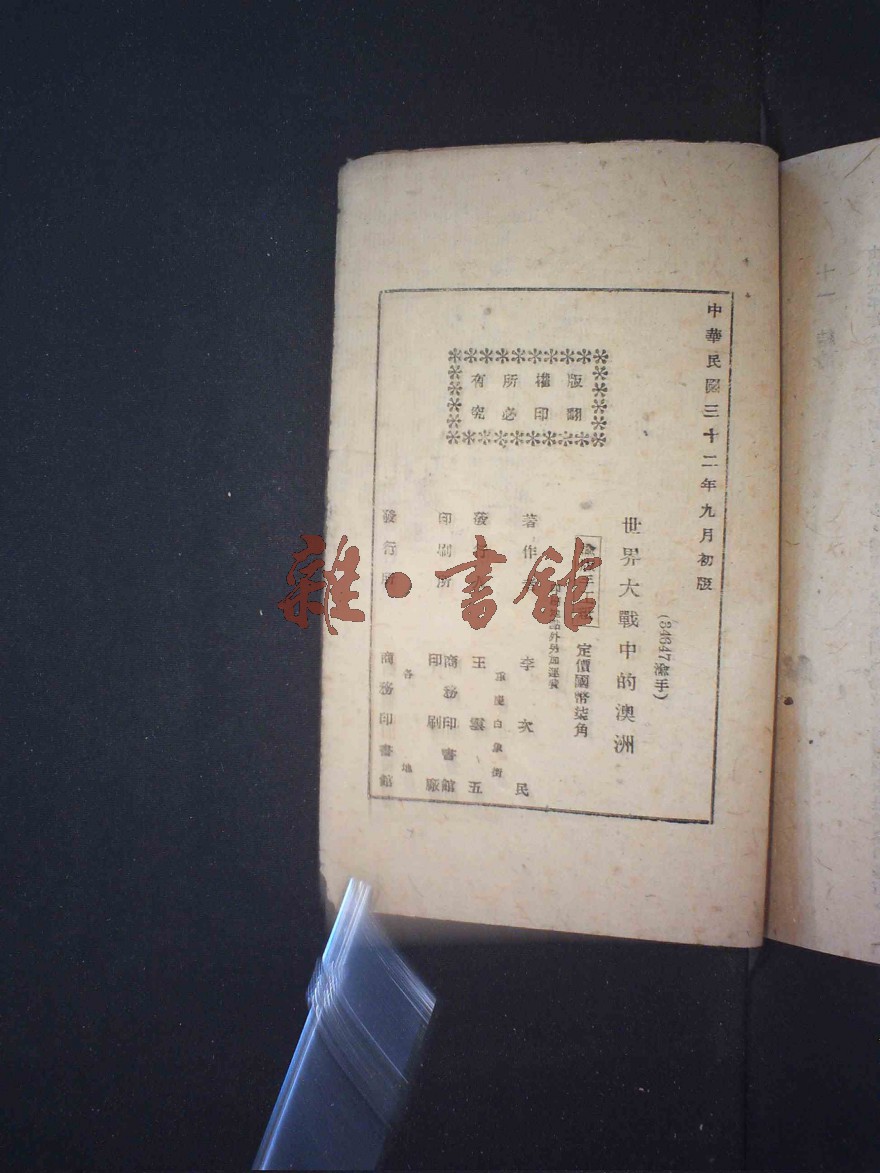 中華民國三十二年九月初版
(84647渝手)
世界大戰中的澳洲
定價國幣柒角
外另加運費
著作 李次民
重慶白象街
發 王雲五
印刷所 商務印書館
印刷廠
各地
發行所 商務印書館
版權所有
翻印必究
雜·書館
十一